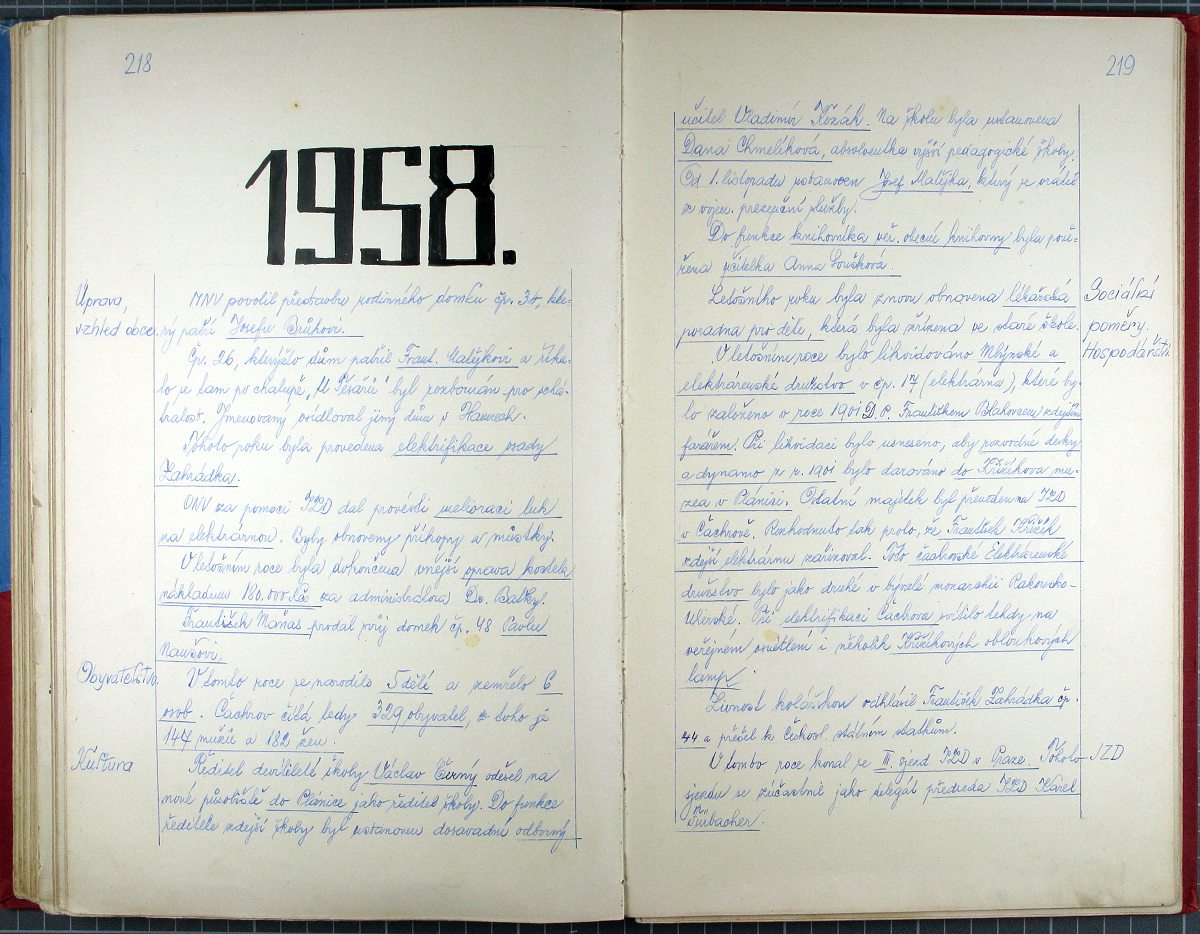 218
1958.
Úprava,
vzhled obce.
MNV povolil přestavbu rodinného domku čp. 34, kte-
rý patří Josefu Brůhovi.
Čp. 26, kterýžto dům patřil Frant. Matějkovi a říka-
lo se tam po chalupě „U Pěšáků" byl rozbourán pro schá-
tralost. Jmenovaný ovdloval jiný dům v
Tohoto roku byla provedena elektrifikace osady
Zahrádka.
ONV za pomoci JZD dal provésti melioraci luk
na elektrárnou. Byly obnoveny příkopy a můstky.
V letošním roce byla dokončena vnější oprava kostela
nákladem 180.000 Kčs za administrátora Dr. Baťky.
František Maňas prodal svůj domek čp. 48 Pavlu
Naušovi.
Obyvatelstvo.
V tomto roce se narodilo 5 dětí a zemřelo 6
osob. Čachrov čítá tedy 329 obyvatel, z toho je
147 mužů a 182 žen.
Kultura
Ředitel devítileté školy Václav Černý odešel na
nové působiště do Plánice jako ředitel školy. Do funkce
ředitele zdejší školy byl ustanoven dosavadní odborný
219
učitel Vladimír Kozák. Na školu byla ustanovena
Dana Chmelíková, absolventka vyšší pedagogické školy.
Od 1. listopadu ustanoven Josef Matějka, který se vrátil
z vojen. prezenční služby.
Do funkce knihovníka veř. obecní knihovny byla pově-
řena učitelka Anna Soušková.
Sociální
poměry.
Letošního roku byla znovu obnovena lékařská
poradna pro děti, která byla zřízena ve staré škole.
Hospodářství
V letošním roce bylo likvidováno Mlýnské a
elektrárenské družstvo v čp. 17 (elektrárna), které by-
lo založeno v roce 1901 D. P. Františkem Blahovcem zdejším
farářem. Při likvidaci bylo usneseno, aby rozvodné desky
a dynamo z r. 1901 bylo darováno do Křižíkova mu-
zea v Plánici. Ostatní majetek byl převeden na JZD
v Čachrově. Rozhodnuto tak proto, že František Křižík
zdejší elektrárnu zařizoval. Toto čachrovské Elektrárenské
družstvo bylo jako druhé v bývalé monarchii Rakousko-
Uherské. Při elektrifikaci Čachrova svítilo tehdy na
veřejném osvětlení i několik Křižíkových obloukových
lamp.
Živnost kolářskou odhlásil František Zahrádka čp.
44 a přešel k Českosl. státním statkům.
JZD
V tomto roce konal se III. sjezd JZD v Praze. Tohoto
sjezdu se zúčastnil jako delegát předseda JZD Karel
Turbacher.